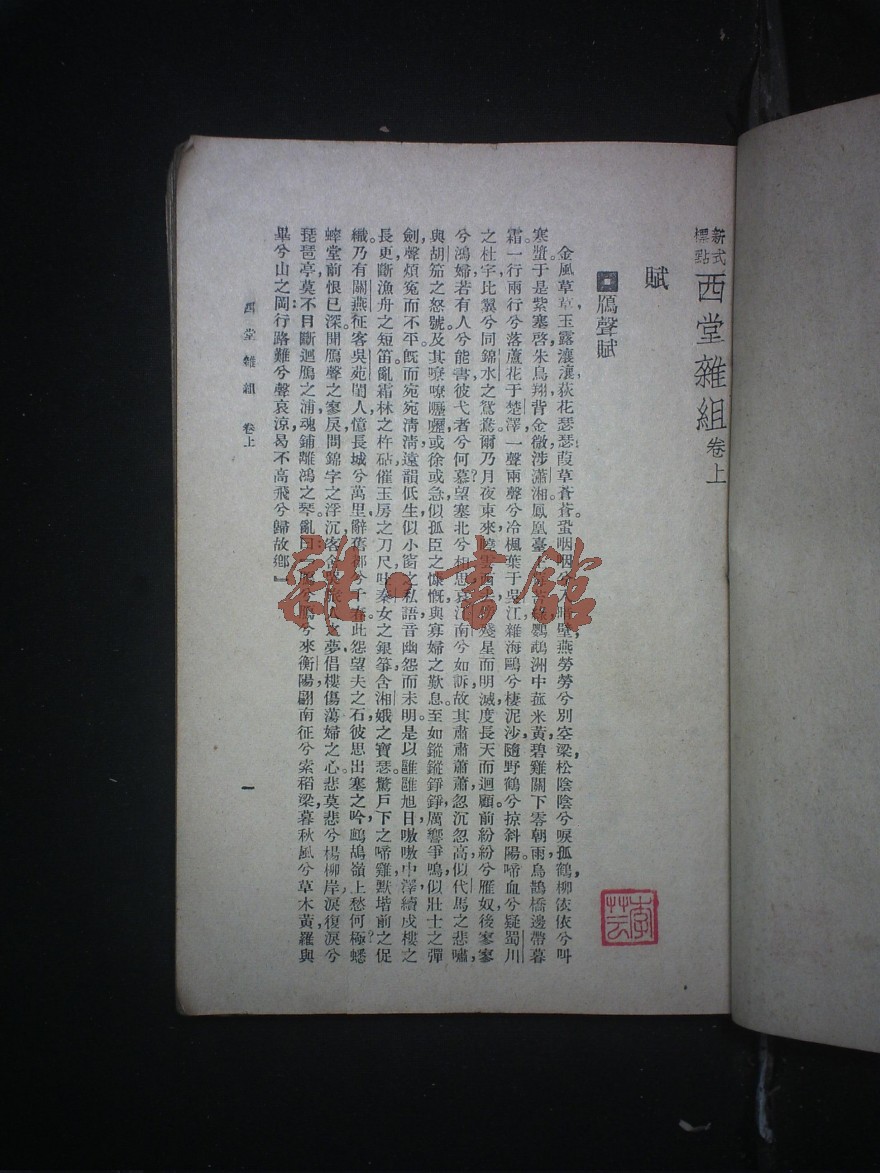 新式標點 西堂雜組 卷上
賦
鴈聲賦
金風草草,玉露瀼瀼,荻花瑟瑟,葭草蒼蒼。蛩咽咽兮入暗壁,燕勞勞兮別空梁,松陰陰兮唳孤鶴,柳依依兮叫
寒螿。于是紫塞啓,朱鳥翔,背金微,涉瀟湘。鳳凰臺鸚鵡洲中菰米黃,碧雞關下零朝雨,烏鵲橋邊帶暮
霜。一行兩行兮落蘆花于楚澤,一聲兩聲兮冷楓葉于吳江,雜海鷗兮棲泥沙,隨野鶴兮掠斜陽。啼血兮疑蜀川
之杜宇,比翼兮同錦水之鴛鴦。爾乃月夜東來,殘星而明滅,度長天而迴顧。前紛紛兮雁奴,後寥寥
兮鴻婦。若有人兮能書,彼弋者兮何慕?望塞北兮相思,哀江南兮如訴。故其肅肅蕭蕭,忽沉忽高,似代馬之悲嘯,
與胡笳之怒號。及其嘹嘹嚦嚦,或徐或急,似孤臣之慷慨,與寡婦之歎息。至如鏦鏦錚錚,厲響爭鳴,似壯士之彈
劍,聲煩冤而不平。旣而宛宛淸淸,遠韻低生,似小窗之私語,音幽怨而未明。是以雝雝旭日,嗷嗷中澤,續戍樓之
長更,斷漁舟之短笛。亂霜林之杵砧,催玉房之刀尺,吐秦女之銀箏,含湘娥之寶瑟。驚戶下之啼雞,默堦前之促
織。乃有關燕征客,吳苑閨人,憶長城兮萬里,辭舊都兮千春。此怨望夫之石,彼思出塞之吟,鷓鴣嶺上愁何極?蟋
蟀堂前恨已深。開鴈聲之寥戾,問錦字之浮沉,客舍之夢,倡樓傷蕩婦之心。悲莫悲兮楊柳岸,淚復淚兮
琵琶亭,莫不目斷迴鴈之浦,魂銷離鴻之琴。亂曰:鴈兮鴈兮來衡陽,翩南征兮索稻粱,暮秋風兮草木黃,羅與
畢兮山之岡,行路難兮聲哀涼,曷不高飛兮歸故鄉』
西堂雜組 卷上
一
雜·書館